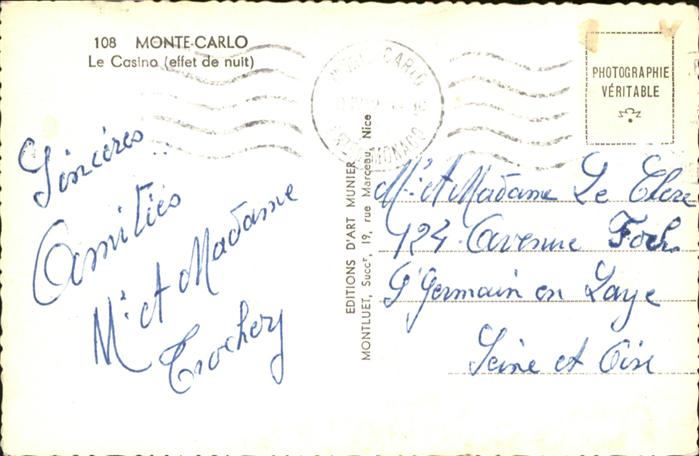 108 MONTE-CARLO
Le Casino (effet de nuit)
MONTE-CARLO
MONACO
PHOTOGRAPHIE
VÉRITABLE
Sincères
Amitiés
Mr et Madame
Trochery
EDITIONS D'ART MUNIER
MONTLUET, Succr, 19, rue Marceau, Nice
Mr et Madame Le Clerc
124 Avenue Foch
St Germain en Laye
Seine et Oise